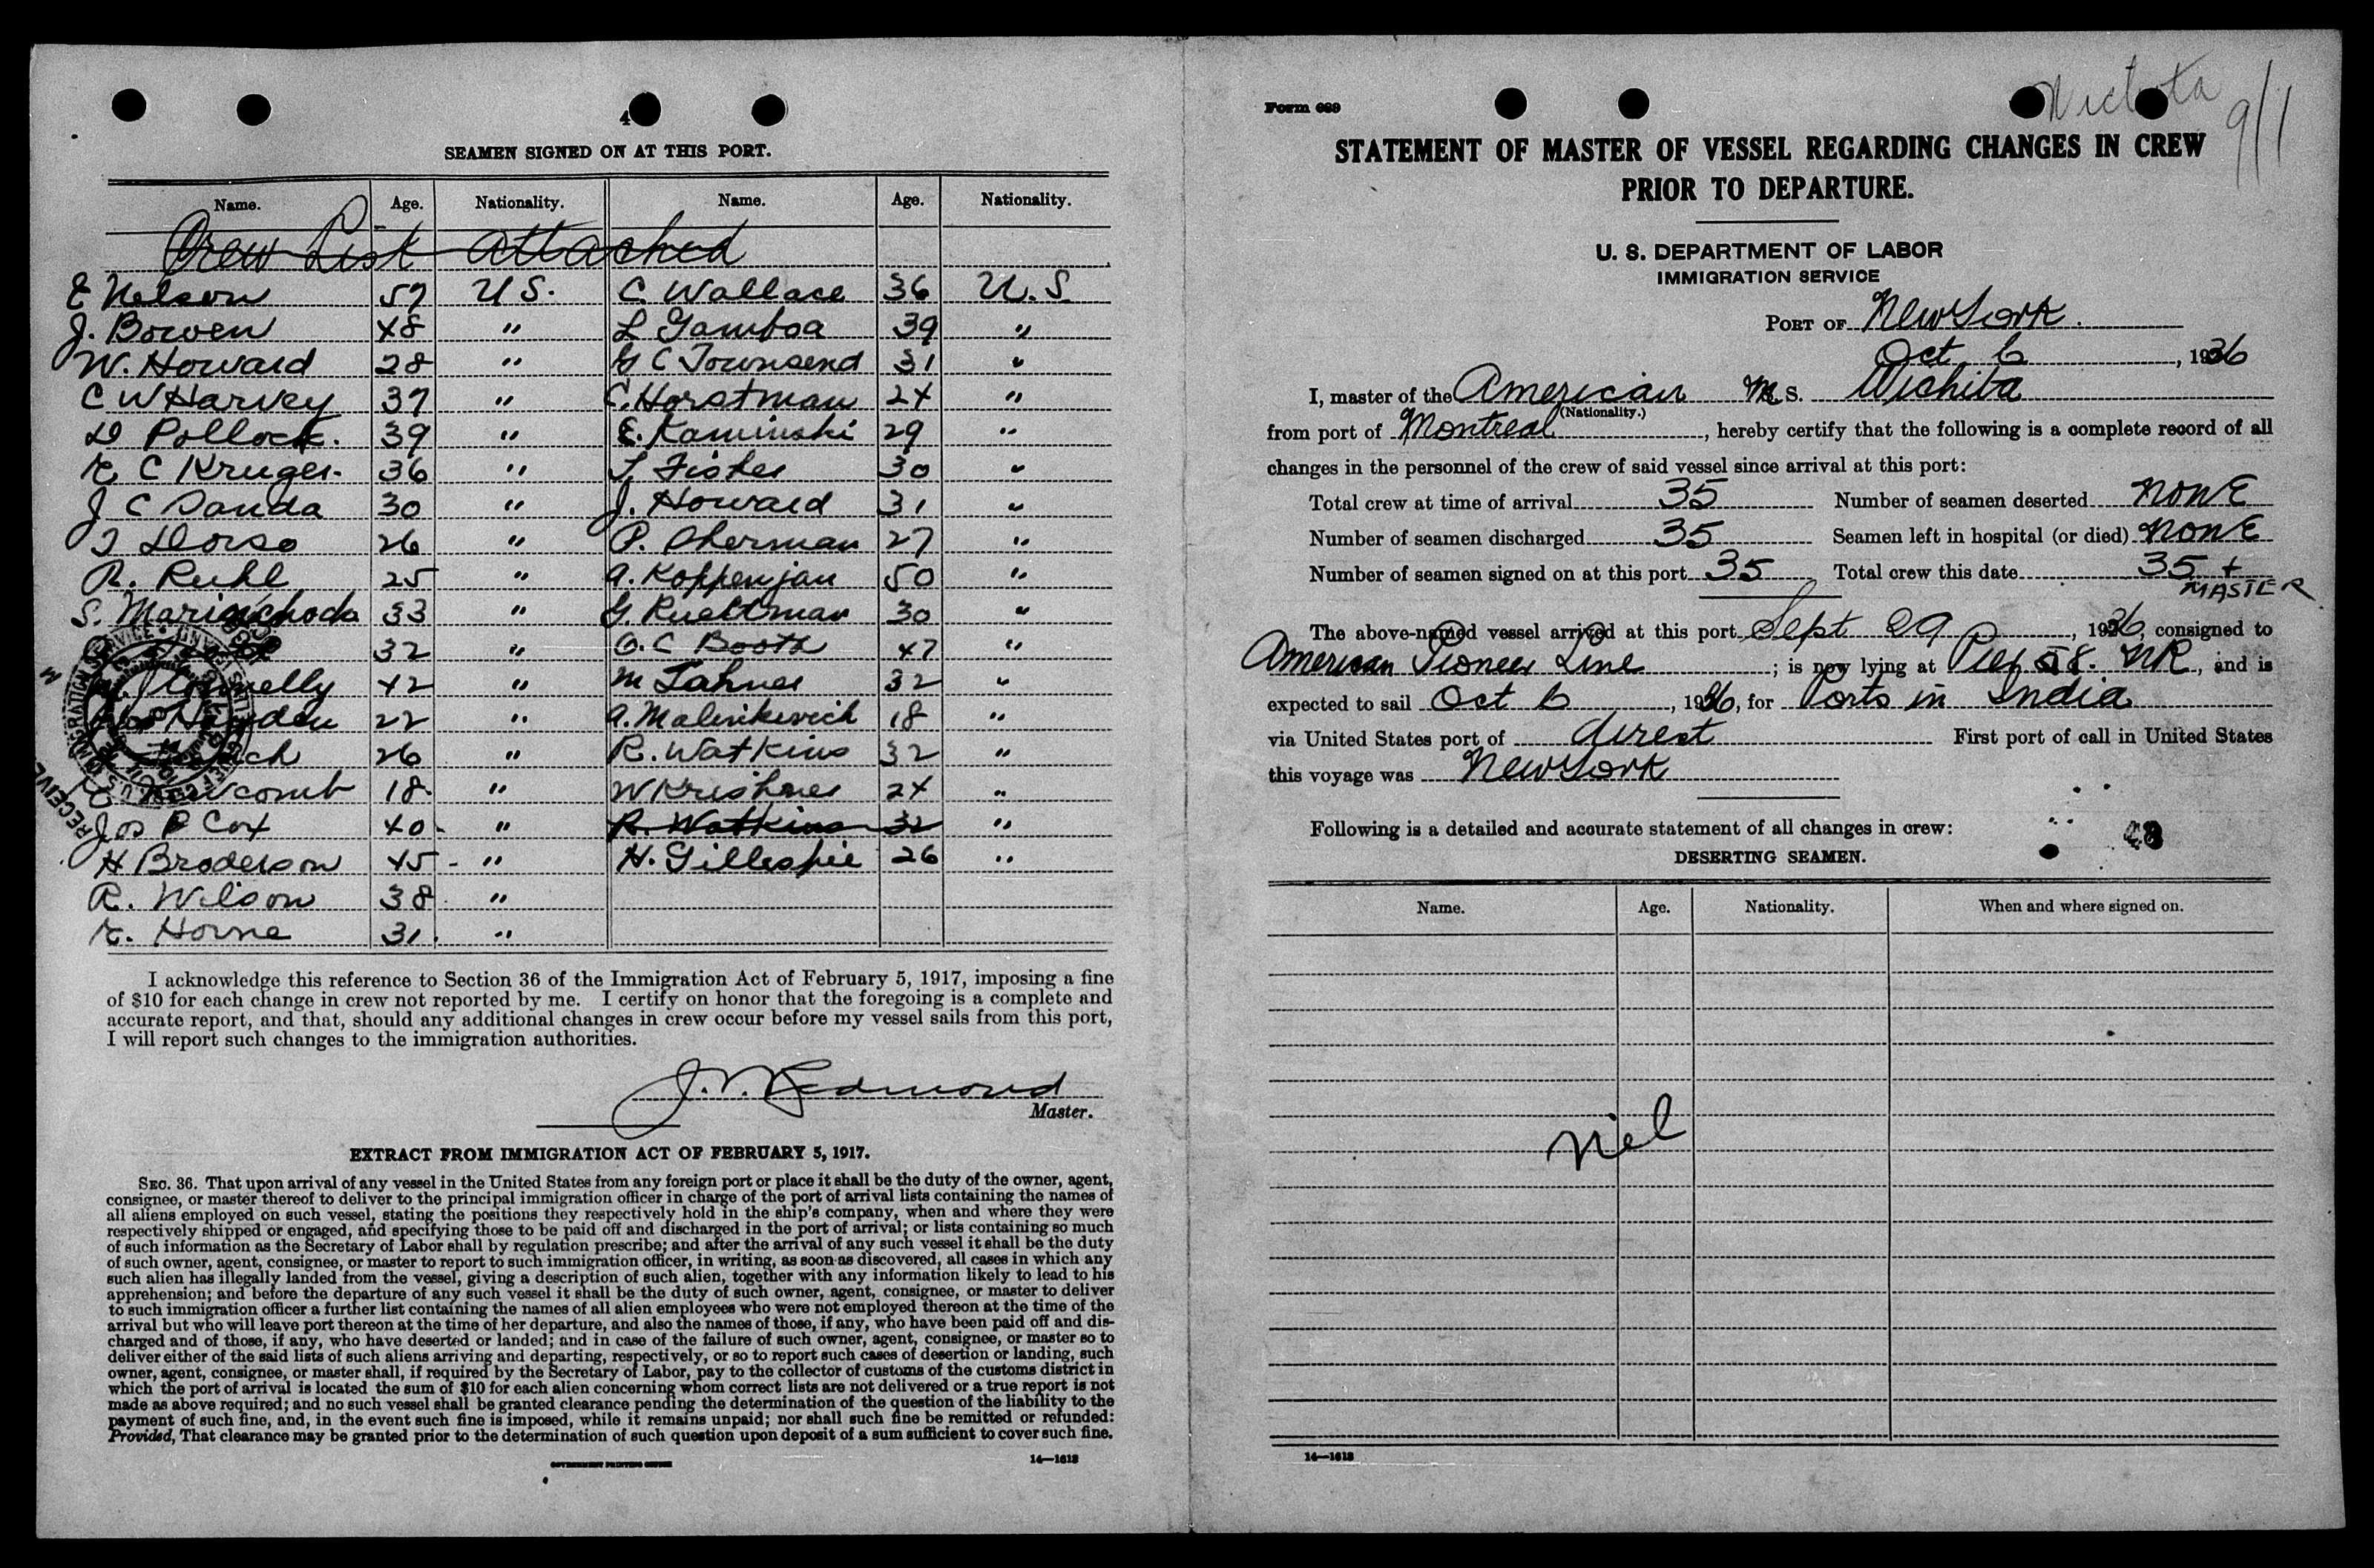 4
SEAMEN SIGNED ON AT THIS PORT.
Name. Age. Nationality. Name. Age. Nationality.
Crew List attached
E Nelson 57 U S. C. Wallace 36 U.S.
J. Bowen 48 " L Gamboa 39 "
W. Howard 28 " G C Townsend 31 "
C W Harvey 37 " C. Horstman 24 "
D Pollock. 39 " E. Kaminski 29 "
E C Kruger. 36 " T. Fisher 30 "
J C Danda 30 " J. Howard 31 "
T Dorso 26 " P. Sherman 27 "
R. Ruhl 25 " A. Koppenjan 50 "
S. 33 " G. Rueltman 30 "
32 " O. C Booth 47 "
42 " M 32 "
22 " A. Malinkevich 18 "
26 " R. Watkins 32 "
18 " W 24 "
Jos P Cox 40 " R. Watkins 32 "
H Broderson 45 - " H. Gillespie 26 "
R. Wilson 38 "
E. Horne 31 "
I acknowledge this reference to Section 36 of the Immigration Act of February 5, 1917, imposing a fine
of $10 for each change in crew not reported by me. I certify on honor that the foregoing is a complete and
accurate report, and that, should any additional changes in crew occur before my vessel sails from this port,
I will report such changes to the immigration authorities.
J. V. Redmond
Master.
EXTRACT FROM IMMIGRATION ACT OF FEBRUARY 5, 1917.
SEC. 36. That upon arrival of any vessel in the United States from any foreign port or place it shall be the duty of the owner, agent,
consignee, or master thereof to deliver to the principal immigration officer in charge of the port of arrival lists containing the names of
all aliens employed on such vessel, stating the positions they respectively hold in the ship's company, when and where they were
respectively shipped or engaged, and specifying those to be paid off and discharged in the port of arrival; or lists containing so much
of such information as the Secretary of Labor shall by regulation prescribe; and after the arrival of any such vessel it shall be the duty
of such owner, agent, consignee, or master to report to such immigration officer, in writing, as soon as discovered, all cases in which any
such alien has illegally landed from the vessel, giving a description of such alien, together with any information likely to lead to his
apprehension; and before the departure of any such vessel it shall be the duty of such owner, agent, consignee, or master to deliver
to such immigration officer a further list containing the names of all alien employees who were not employed thereon at the time of the
arrival but who will leave port thereon at the time of her departure, and also the names of those, if any, who have been paid off and dis-
charged and of those, if any, who have deserted or landed; and in case of the failure of such owner, agent, consignee, or master so to
deliver either of the said lists of such aliens arriving and departing, respectively, or so to report such cases of desertion or landing, such
owner, agent, consignee, or master shall, if required by the Secretary of Labor, pay to the collector of customs of the customs district in
which the port of arrival is located the sum of $10 for each alien concerning whom correct lists are not delivered or a true report is not
made as above required; and no such vessel shall be granted clearance pending the determination of the question of the liability to the
payment of such fine, and, in the event such fine is imposed, while it remains unpaid; nor shall such fine be remitted or refunded:
Provided, That clearance may be granted prior to the determination of such question upon deposit of a sum sufficient to cover such fine.
GOVERNMENT PRINTING OFFICE 14—1613
9/1
Form 689
STATEMENT OF MASTER OF VESSEL REGARDING CHANGES IN CREW
PRIOR TO DEPARTURE.
U. S. DEPARTMENT OF LABOR
IMMIGRATION SERVICE
PORT OF New York.
Oct 6, 1936
I, master of the American M. S. Wichita
(Nationality.)
from port of Montreal, hereby certify that the following is a complete record of all
changes in the personnel of the crew of said vessel since arrival at this port:
Total crew at time of arrival 35 Number of seamen deserted NONE
Number of seamen discharged 35 Seamen left in hospital (or died) NONE
Number of seamen signed on at this port 35 Total crew this date 35 +
MASTER
The above-named vessel arrived at this port Sept 29, 1936, consigned to
American Pioneer Line; is now lying at Pier 58. NR, and is
expected to sail Oct 6, 1936, for Ports in India
via United States port of direct First port of call in United States
this voyage was New York
Following is a detailed and accurate statement of all changes in crew:
48
DESERTING SEAMEN.
Name. Age. Nationality. When and where signed on.
Nil
14—1613